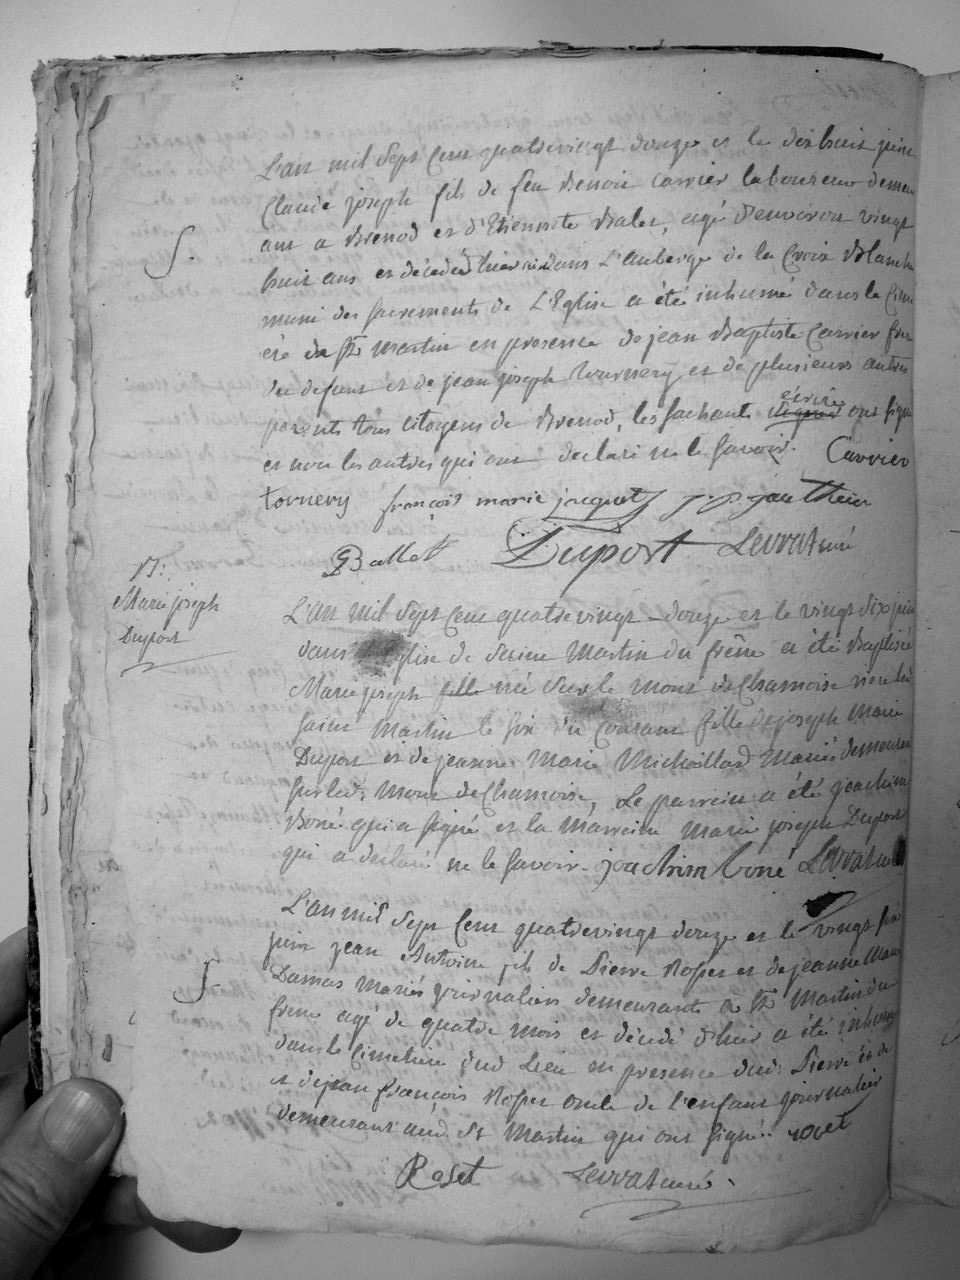 L'an mil sept cent quatrevingt douze et le dix huit juin
Claude joseph fils de feu Benoit Carrier laboureur demeu
ant a Brenod et d'Etiennette Balet, agé d'environ vingt
huit ans et décédé hier dans L'auberge de la Croix Blanche
muni des sacrements de L'Eglise a été inhumé dans le Cime
de St Martin en presence de jean Baptiste Carrier frere
du defunt et de jean joseph tournery et de plusieurs autres
parents tous citoyens de Brenod, les sachants écrire ont signé
et non les autres qui ont declaré ne le savoir. Carrier
tornery françois marie jacquet j. j. jantheur
Ballet Duport Levrat curé
S.
B:
Marie joseph
Duport
L'an mil sept cent quatrevingt douze et le vingt dix juin
dans l'Eglise de Saint Martin du frêne a été Baptisée
Marie joseph fille née sur le mont de Chamoise riere led
saint Martin le six du courant fille de joseph Marie
Dupont et de jeanne Marie Michaillard Mariés demeurant
sur led: mont de Chamoise, Le parrein a été joachim
Boné qui a signé et la Marreine Marie joseph Dupont
qui a declaré ne le savoir. joachim boné Levrat curé
S.
L'an mil sept cent quatrevingt douze et le vingt
juin jean Antoine fils de Pierre Roset et de jeanne Marie
Damas Mariés journaliers demeurant a St Martin du
frene agé de quatre mois et décédé d'hier a été inhumé
dans le Cimetiere dud Lieu en presence dud: Pierre
et de jean françois Roset oncle de l'enfant journalier
demeurant aud. St Martin qui ont signé. roset
Roset Levrat curé.